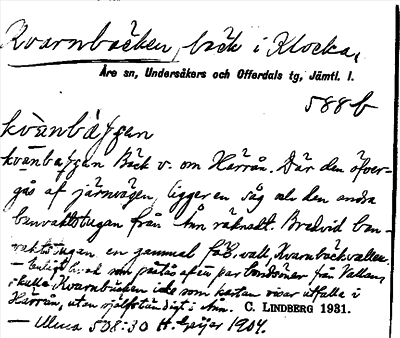 Kvarnbäcken, bäck i Klocka,
Åre sn, Undersåkers och Offerdals tg, Jämtl. l.
588b
Bäck v. om Härrån. Där den öfver-
gås af järnvägen, ligger en såg och den andra
banvaktstugan från Ånn räknadt. Bredvid ban-
vaktstugan en gammal fäb.vall, Kvarnbäckvallen.
som påstås af en par bondsöner från Vallan,
Kvarnbäcken icke som kartan visar utfalla i
Härrån, utan självständigt i Ånn. C. LINDBERG 1931.
— Ulma 508:30 H. Geijer 1904.